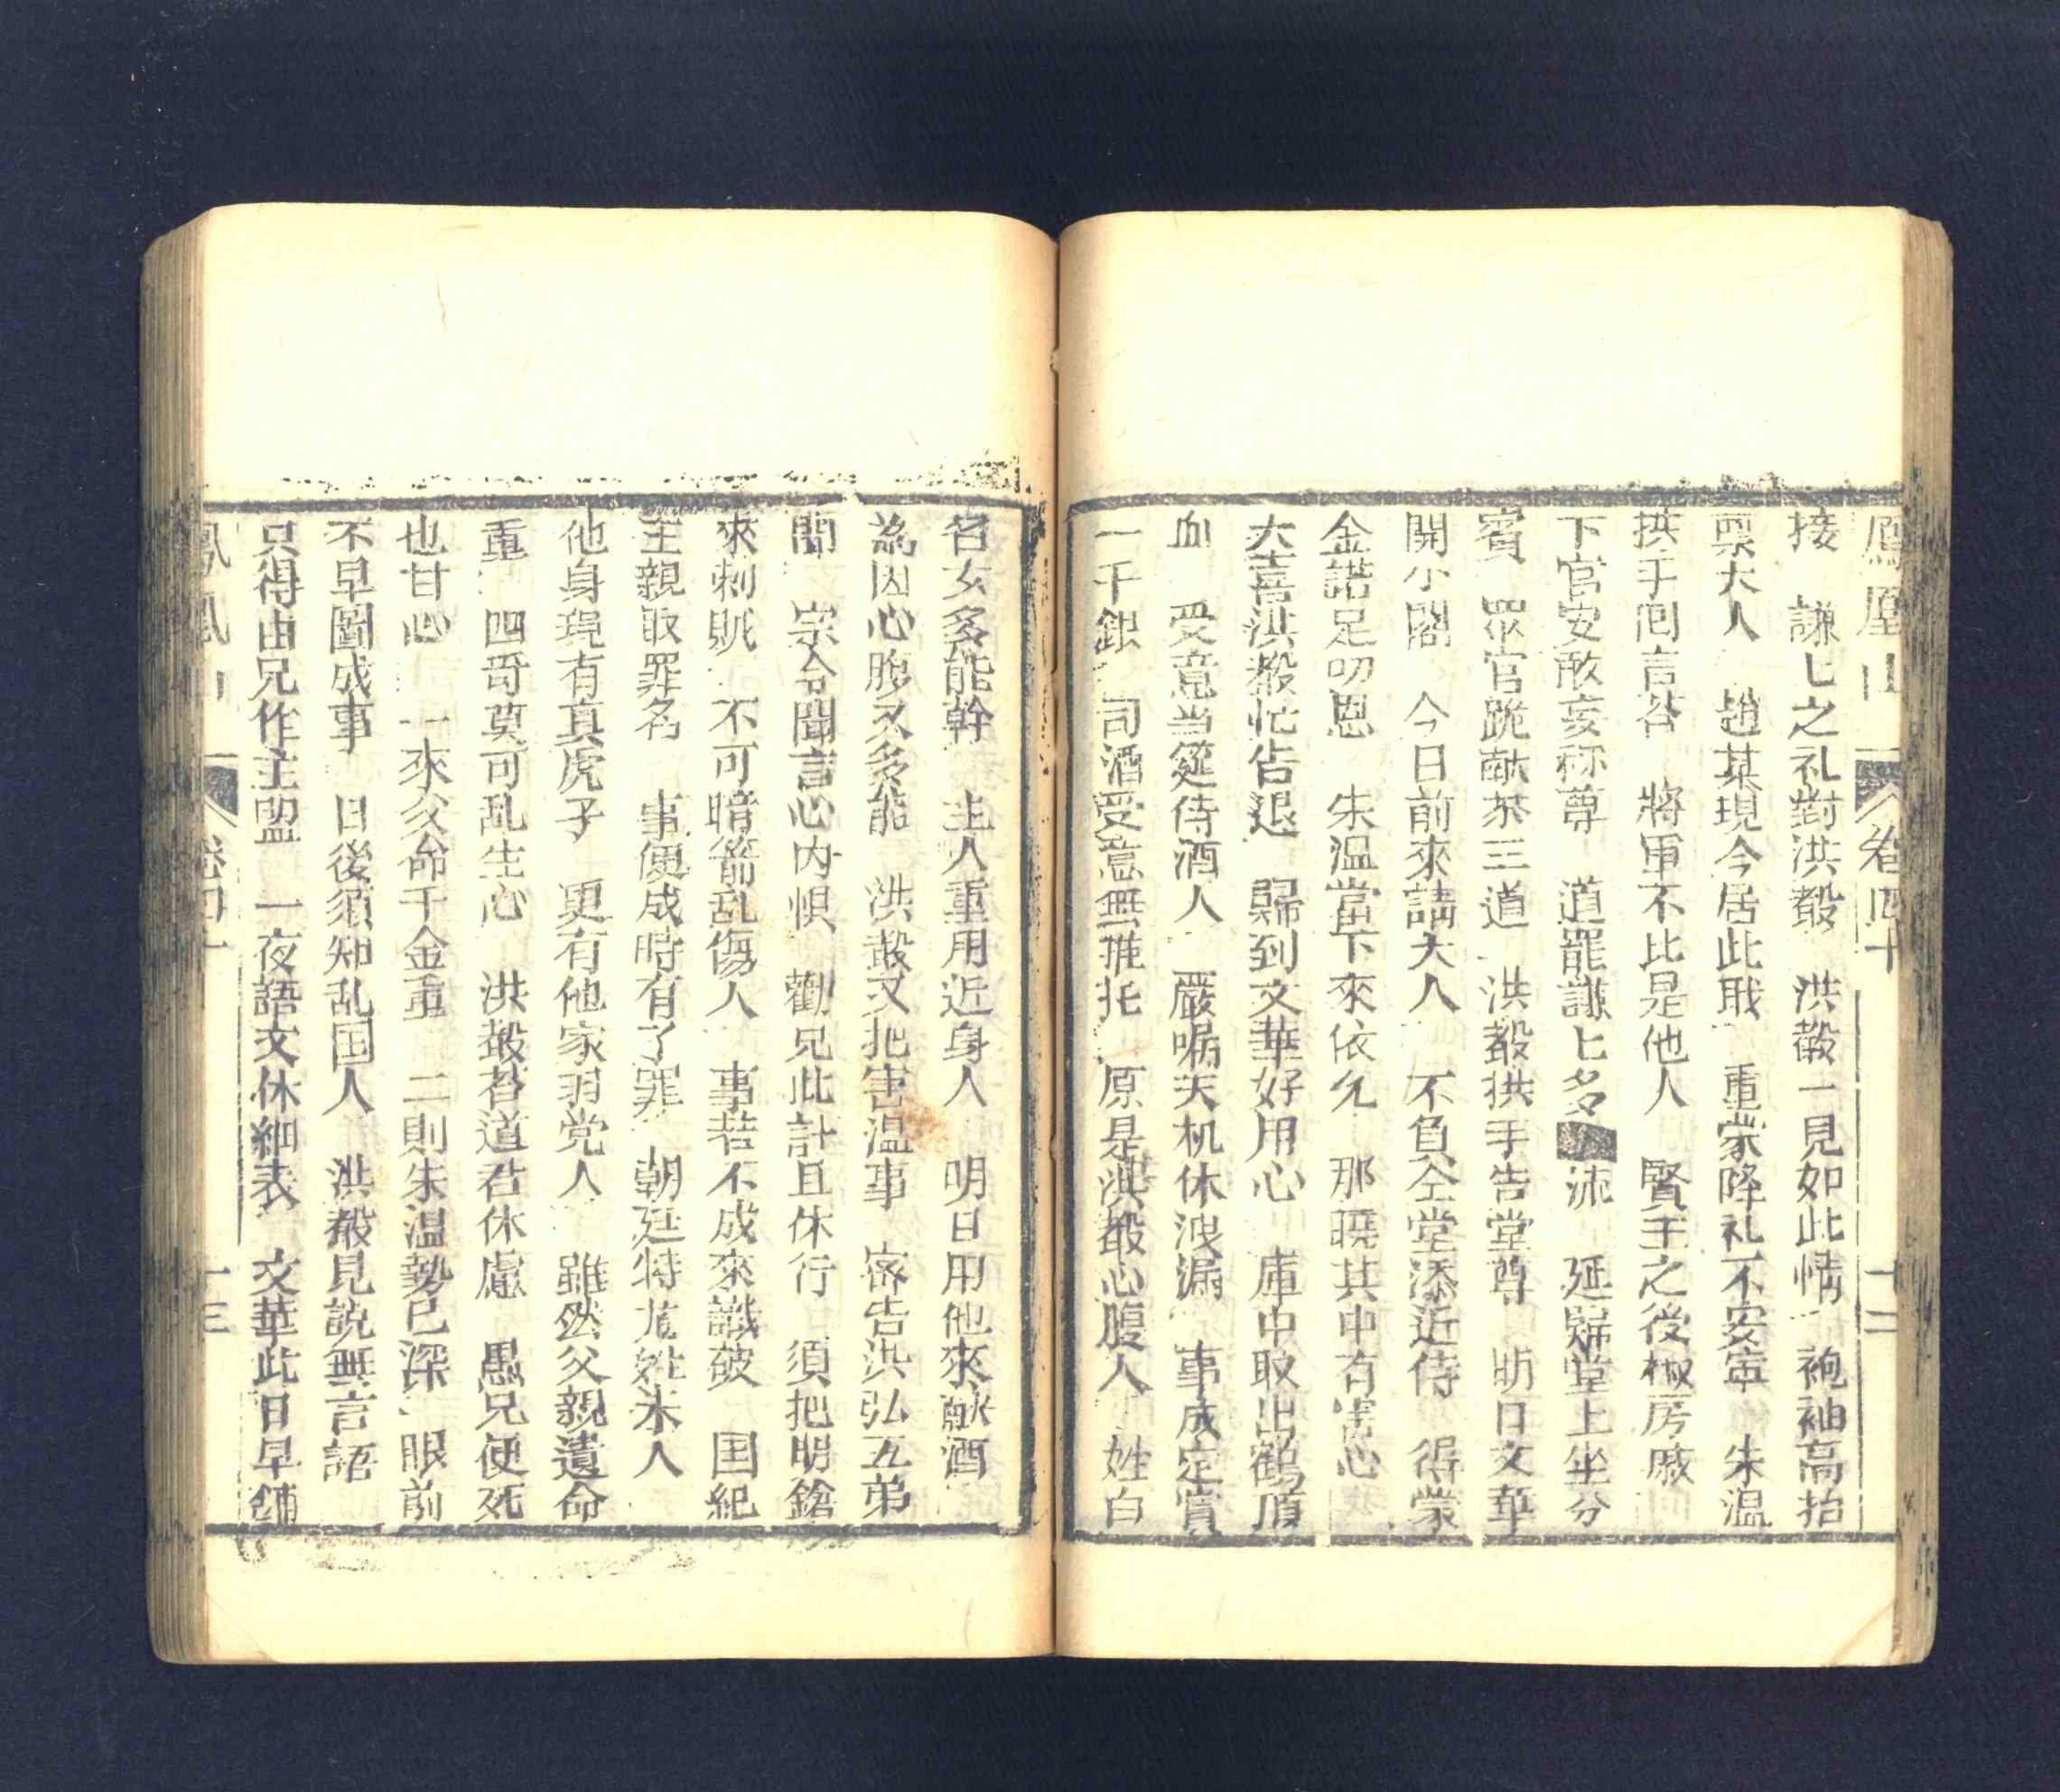 鳳凰山 卷四十 十二
接 謙匕之礼對洪殽 洪殽一見如此情 袍袖高抬
禀大人 趙某現今居此职 重蒙降礼不安寜 朱温
拱手囘言荅 將軍不比是他人 賢王之後椒房戚
下官安敢妄称尊 道罷謙匕多 㳈 延歸堂上坐分
賓 眾官跪献茶三道 洪殽拱手告堂尊 明日文華
開小閣 今日前來請大人 不負仝堂添近侍 得蒙
金諾足叨恩 朱温當下來依允 那曉其中有害心
大喜洪殽忙告退 歸到文華好用心 庫中取出鶴頂
血 受意当筵侍酒人 嚴嘱天机休洩漏 事成定賞
一千銀 司酒受意無推托 原是洪殽心腹人 姓白
名女多能幹 主人重用近身人 明日用他來献酒
為因心腹又多能 洪殽又把害温事 密告洪弘五弟
聞 宗令聞言心内惧 勸兄此計且休行 須把明鎗
來刺贼 不可暗箭乱傷人 事若不成來識破 国紀
王親取罪名 事便成時有了罪 朝廷特尨姓朱人
他身現有真虎子 更有他家羽党人 雖然父親遺命
重 四哥莫可乱生心 洪殽荅道君休慮 愚兄便死
也甘心 一來父命千金重 二則朱温勢已深 眼前
不早圖成事 日後須知乱国人 洪殽見説無言語
只得由兄作主盟 一夜語文休細表 文華此日早鋪
鳳凰山 卷四十 十三